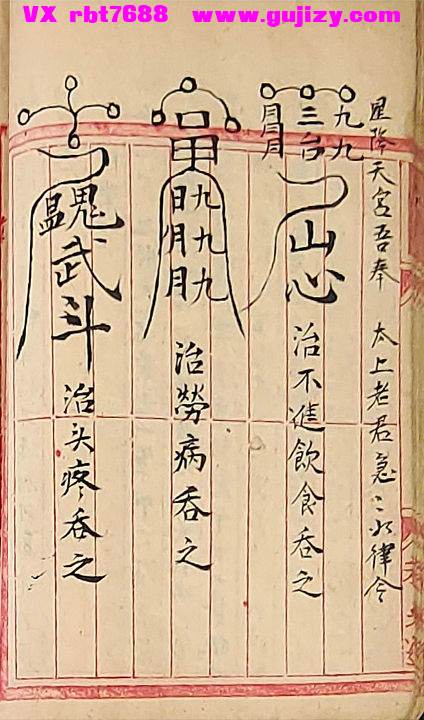 VX rbt7688 www.gujizy.com
星降天宫吾奉 太上老君急〻水律令
九九
三台
山心
治不進飲食吞之
九九九
日月月
治勞病吞之
魁武斗
治头疼吞之